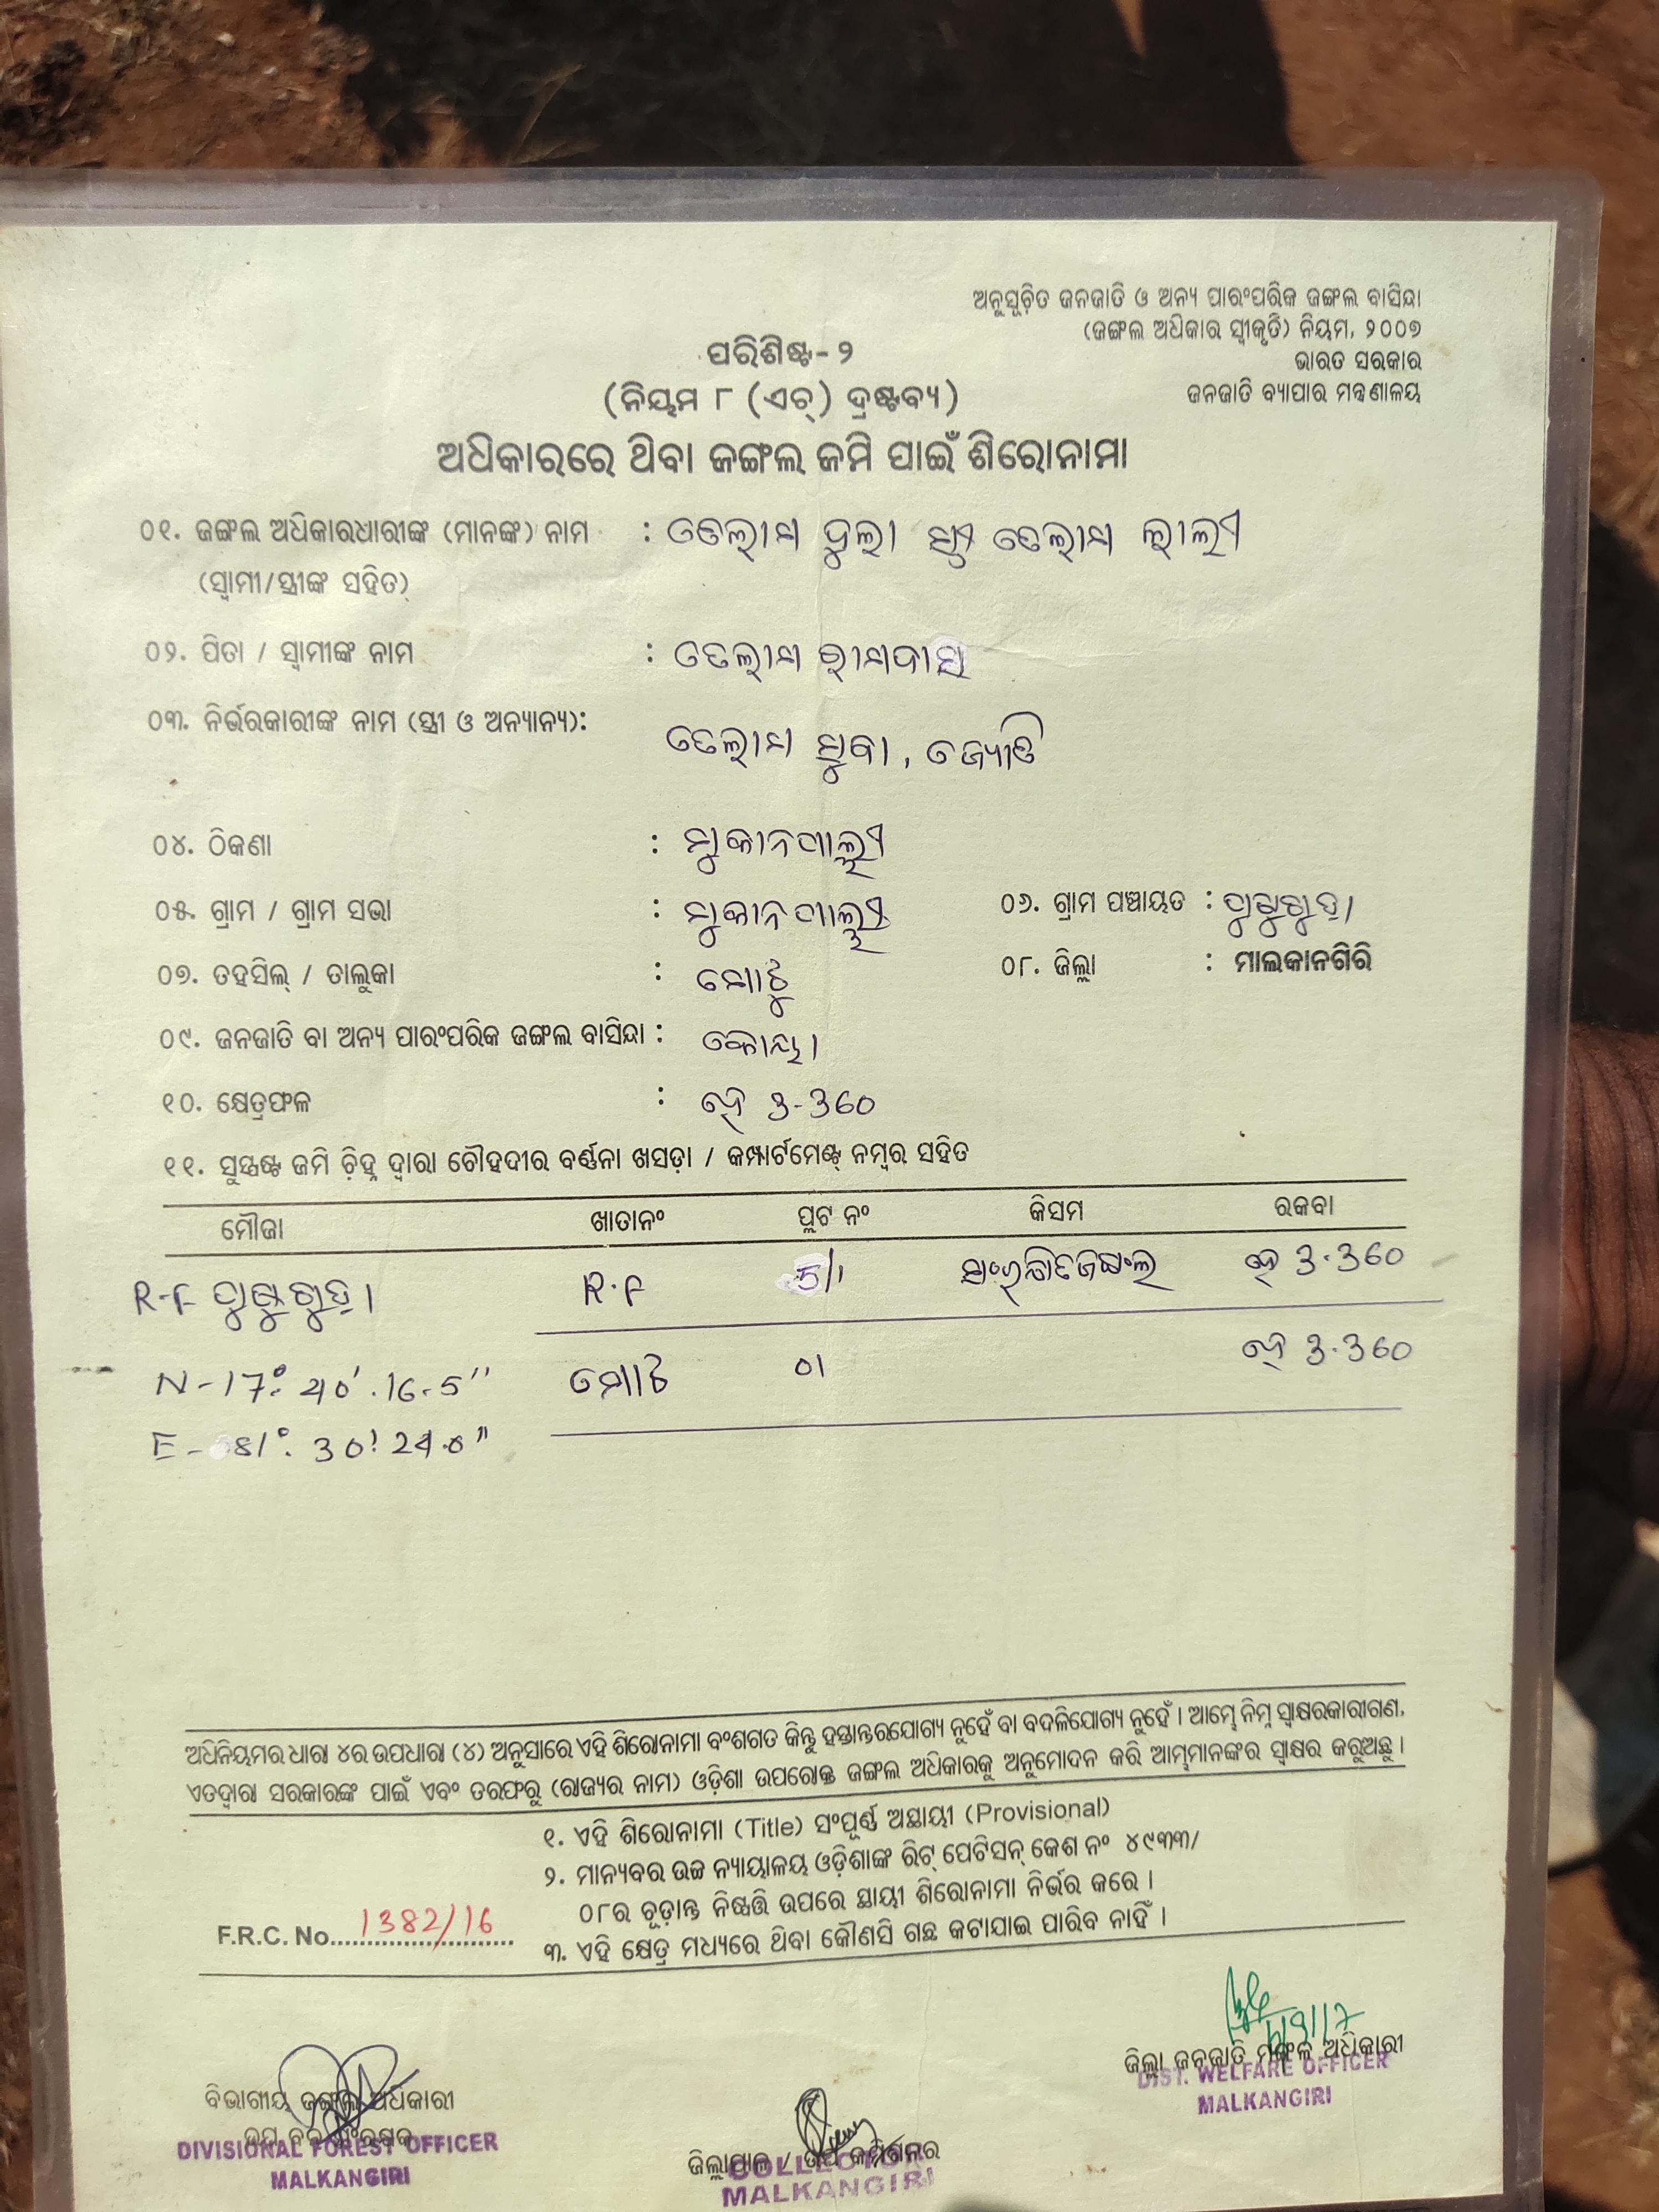 ଅନୁସୂଚିତ ଜନଜାତି ଓ ଅନ୍ୟ ପାରଂପରିକ ଜଙ୍ଗଲ ବାସିନ୍ଦା
(ଜଙ୍ଗଲ ଅଧିକାର ସ୍ୱୀକୃତି) ନିୟମ, ୨୦୦୭
ଭାରତ ସରକାର
ଜନଜାତି ବ୍ୟାପାର ମନ୍ତ୍ରଣାଳୟ
ପରିଶିଷ୍ଟ-୨
(ନିୟମ ୮ (ଏଚ୍) ଦ୍ରଷ୍ଟବ୍ୟ)
ଅଧିକାରରେ ଥିବା ଜଙ୍ଗଲ ଜମି ପାଇଁ ଶିରୋନାମା
୦୧. ଜଙ୍ଗଲ ଅଧିକାରଧାରୀଙ୍କ (ମାନଙ୍କ) ନାମ : ତେଲାମ ଦୁଲା ସ୍ତ୍ରୀ ତେଲାମ ଲାଲୀ
(ସ୍ୱାମୀ/ସ୍ତ୍ରୀଙ୍କ ସହିତ)
୦୨. ପିତା / ସ୍ୱାମୀଙ୍କ ନାମ : ତେଲାମ ରାମଦାସ
୦୩. ନିର୍ଭରକାରୀଙ୍କ ନାମ (ସ୍ତ୍ରୀ ଓ ଅନ୍ୟାନ୍ୟ): ତେଲାମ ଜ୍ୟୋତି
୦୪. ଠିକଣା : ମୁକାନପାଲ୍ଲୀ
୦୫. ଗ୍ରାମ / ଗ୍ରାମ ସଭା : ମୁକାନପାଲ୍ଲୀ ୦୬. ଗ୍ରାମ ପଞ୍ଚାୟତ :
୦୭. ତହସିଲ୍ / ତାଲୁକା : ମୋଟୁ ୦୮. ଜିଲ୍ଲା : ମାଲକାନଗିରି
୦୯. ଜନଜାତି ବା ଅନ୍ୟ ପାରଂପରିକ ଜଙ୍ଗଲ ବାସିନ୍ଦା : କୋୟା
୧୦. କ୍ଷେତ୍ରଫଳ : ହେ 3-360
୧୧. ସୁସ୍ପଷ୍ଟ ଜମି ଚିହ୍ନ ଦ୍ୱାରା ଚୌହଦୀର ବର୍ଣ୍ଣନା ଖସଡ଼ା / କମ୍ପାର୍ଟମେଣ୍ଟ୍ ନମ୍ବର ସହିତ
ମୌଜା ଖାତାନଂ ପ୍ଲଟ ନଂ କିସମ ରକବା
R-F R.F 5/1 ହେ 3.360
N-17° 40' .16.5'' ମୋଟ ୦୧ ହେ 3.360
E-81° 30' 24.0"
ଅଧିନିୟମର ଧାରା ୪ର ଉପଧାରା (୪) ଅନୁସାରେ ଏହି ଶିରୋନାମା ବଂଶଗତ କିନ୍ତୁ ହସ୍ତାନ୍ତରଯୋଗ୍ୟ ନୁହେଁ ବା ବଦଳିଯୋଗ୍ୟ ନୁହେଁ । ଆମ୍ଭେ ନିମ୍ନ ସ୍ୱାକ୍ଷରକାରୀଗଣ,
ଏତଦ୍ୱାରା ସରକାରଙ୍କ ପାଇଁ ଏବଂ ତରଫରୁ (ରାଜ୍ୟର ନାମ) ଓଡ଼ିଶା ଉପରୋକ୍ତ ଜଙ୍ଗଲ ଅଧିକାରକୁ ଅନୁମୋଦନ କରି ଆମ୍ଭମାନଙ୍କର ସ୍ୱାକ୍ଷର କରୁଅଛୁ ।
୧. ଏହି ଶିରୋନାମା (Title) ସଂପୂର୍ଣ୍ଣ ଅସ୍ଥାୟୀ (Provisional)
୨. ମାନ୍ୟବର ଉଚ୍ଚ ନ୍ୟାୟାଳୟ ଓଡ଼ିଶାଙ୍କ ରିଟ୍ ପେଟିସନ୍ କେଶ ନଂ ୪୯୩୩/
୦୮ର ଚୂଡ଼ାନ୍ତ ନିଷ୍ପତ୍ତି ଉପରେ ସ୍ଥାୟୀ ଶିରୋନାମା ନିର୍ଭର କରେ ।
F.R.C. No. 1382/16
୩. ଏହି କ୍ଷେତ୍ର ମଧ୍ୟରେ ଥିବା କୌଣସି ଗଛ କଟାଯାଇ ପାରିବ ନାହିଁ ।
ଜିଲ୍ଲା ଜନଜାତି ମଙ୍ଗଳ ଅଧିକାରୀ
DIST. WELFARE OFFICER
MALKANGIRI
ବିଭାଗୀୟ ଜଙ୍ଗଲ ଅଧିକାରୀ
DIVISIONAL FOREST OFFICER
MALKANGIRI
ଜିଲ୍ଲାପାଳ / ଉପ କମିଶନର
COLLECTOR
MALKANGIRI